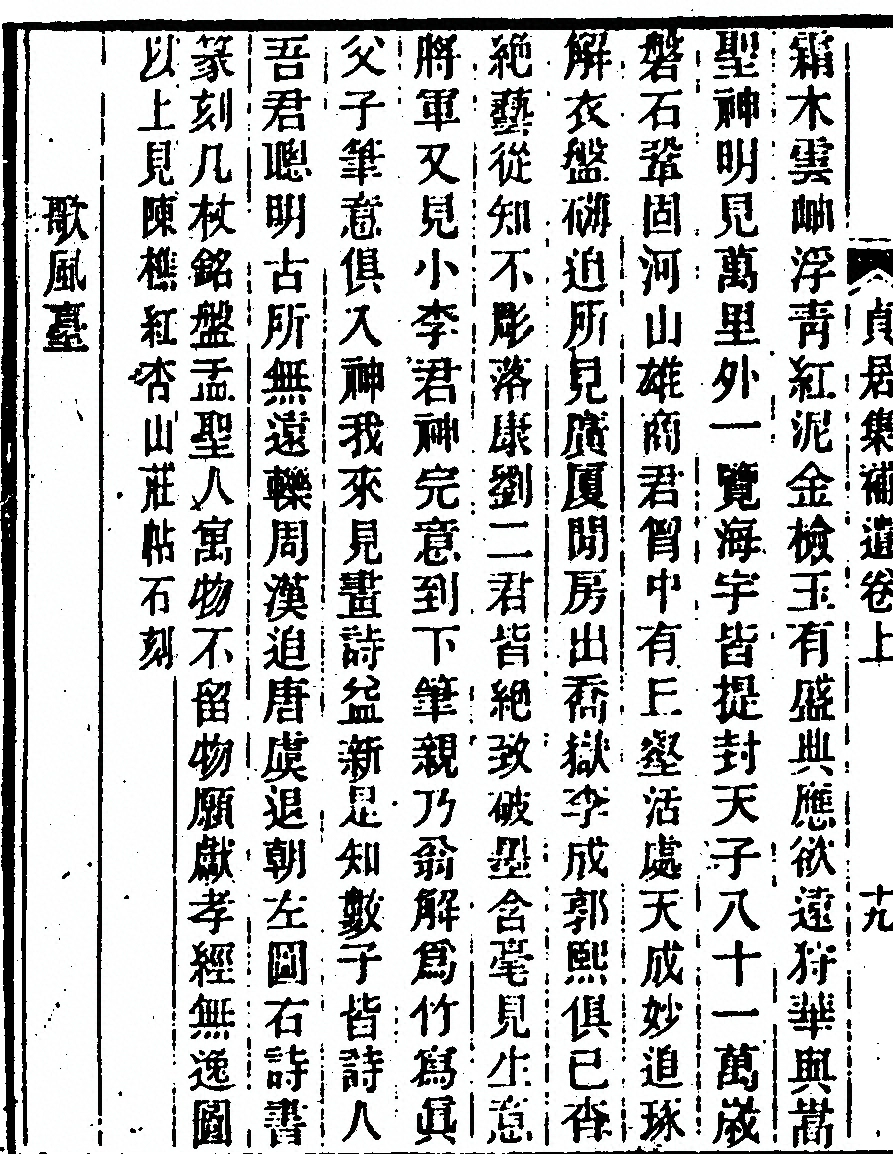 貞居集補遺卷上　十九
霜木雲岫浮青紅泥金檢玉有盛典應欲遠狩華與嵩
聖神明見萬里外一覽海宇皆提封天子八十一萬歲
磐石鞏固河山雄商君胷中有丘壑活處天成妙追琢
解衣盤礴迫所見廣厦閒房出喬嶽李成郭熙俱已杳
絶藝從知不彫落康劉二君皆絶致破墨含毫見生意
將軍又見小李君神完意到下筆親乃翁解爲竹寫眞
父子筆意俱入神我來見畫詩益新是知數子皆詩人
吾君聰明古所無遠轢周漢追唐虞退朝左圖右詩書
篆刻几杖銘盤盂聖人寓物不留物願獻孝經無逸圖
以上見陳樵紅杏山莊帖石刻
歌風臺